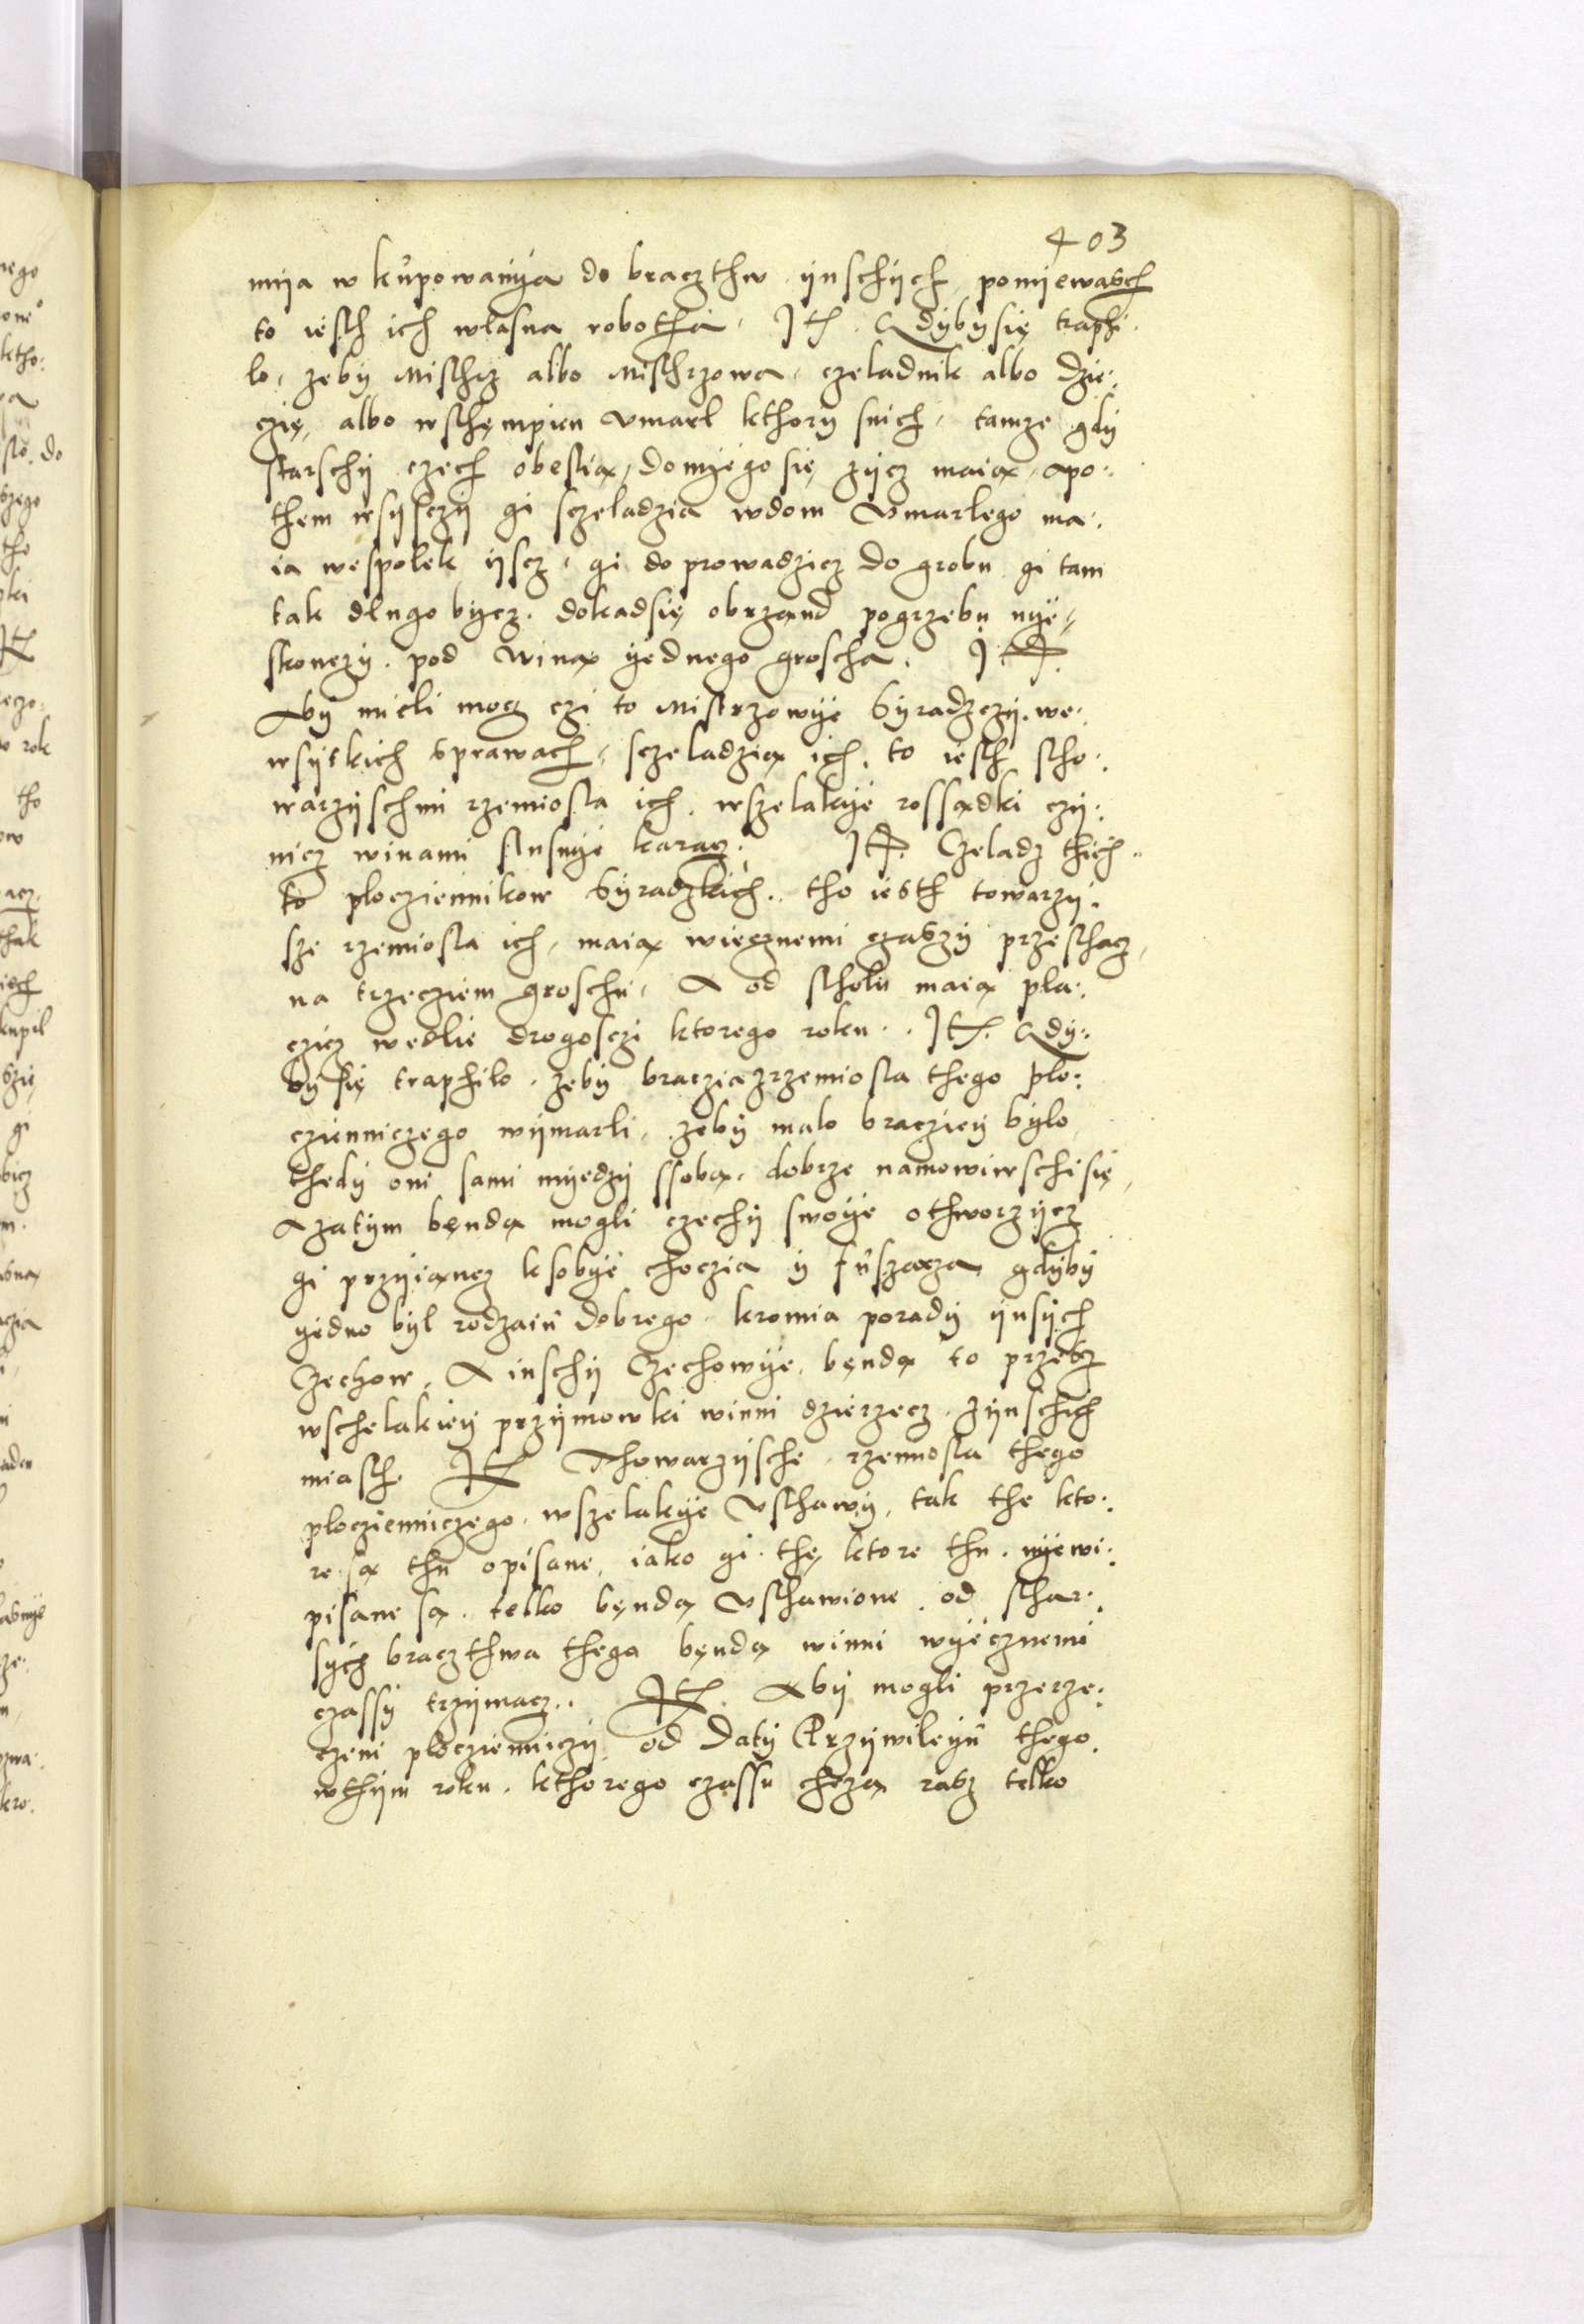 403
mija w kupowanÿa do braczthw ÿnschÿch ponijewasch
to iesth ich własna robotha. Jt. Gdÿbÿ się traphi
lo, zebÿ Mischrz albo Mischrzowa, czeladnik albo dzie:
czię, albo wschęmpien vmarl kthorÿ snich, tamze gdÿ
starschÿ czech obesła, do nÿego się zÿcz maia, apo:
them wsÿsczÿ gi sczeladzia wdom vmarlego ma:
ia wespolek ÿscz, gi do prowadzicz do grobu gi tam
tak dlugo bÿcz. dokad się obrzand pogrzebu nÿe
skonczÿ. pod winą ÿednego groscha. Jt.
Abÿ mieli mocz czi to Mistrzowÿe Sÿradzczÿ. we:
wsÿtkich sprawach, sczeladzią ich. to iesth stho:
warzÿschmi rzemiosla ich. wszelakÿe rossądki czÿ:
nicz winami slusnÿe karacz. Jt. Czeladz thich
to plocziennikow Sÿradzkich. tho iesth towarzÿ:
sze rzemiosla ich, maią wiecznemi czaszÿ przesthacz,
na trzecziem groschu, A od stholu maią pla:
czicz wedlie drogosczi ktorego roku. Jt. Gdÿ:
bÿ się traphilo. zebÿ braczia zrzemiosla thego plo:
czienniczego wÿmarli, zebÿ malo braczieÿ bÿlo,
thedÿ oni sami mÿedzÿ ssobą. dobrze namowiwschi się,
azatÿm będą mogli czechÿ swoÿe othworzÿcz
gi przÿiącz ksobÿe choczia ÿ fuszacza, gdÿbÿ
ÿedno bÿl rodzaiu dobrego. kromia poradÿ ÿnsÿch
Czechow. A inschÿ Czechowÿe. będą to przesz
wschelakieÿ przÿmowki winni dzierzecz. zÿnschich
miasth. Jt Thowarzÿsche rzemiosla thego
plocziennniczego. wszelakÿe vsthawÿ, tak the kto:
re są thu opisane, iako gi the, ktore thu. nÿewi:
pisane są. telko bęndą vsthawione od sthar:
sÿch braczthwa thego bęndą winni wÿecznemi
czassÿ trzÿmacz.. Jt. Abÿ mogli przerze:
czeni plocziennniczÿ od datÿ Przÿwileÿu thego.
wthÿm roku. kthorego czassu chczą rasz telko